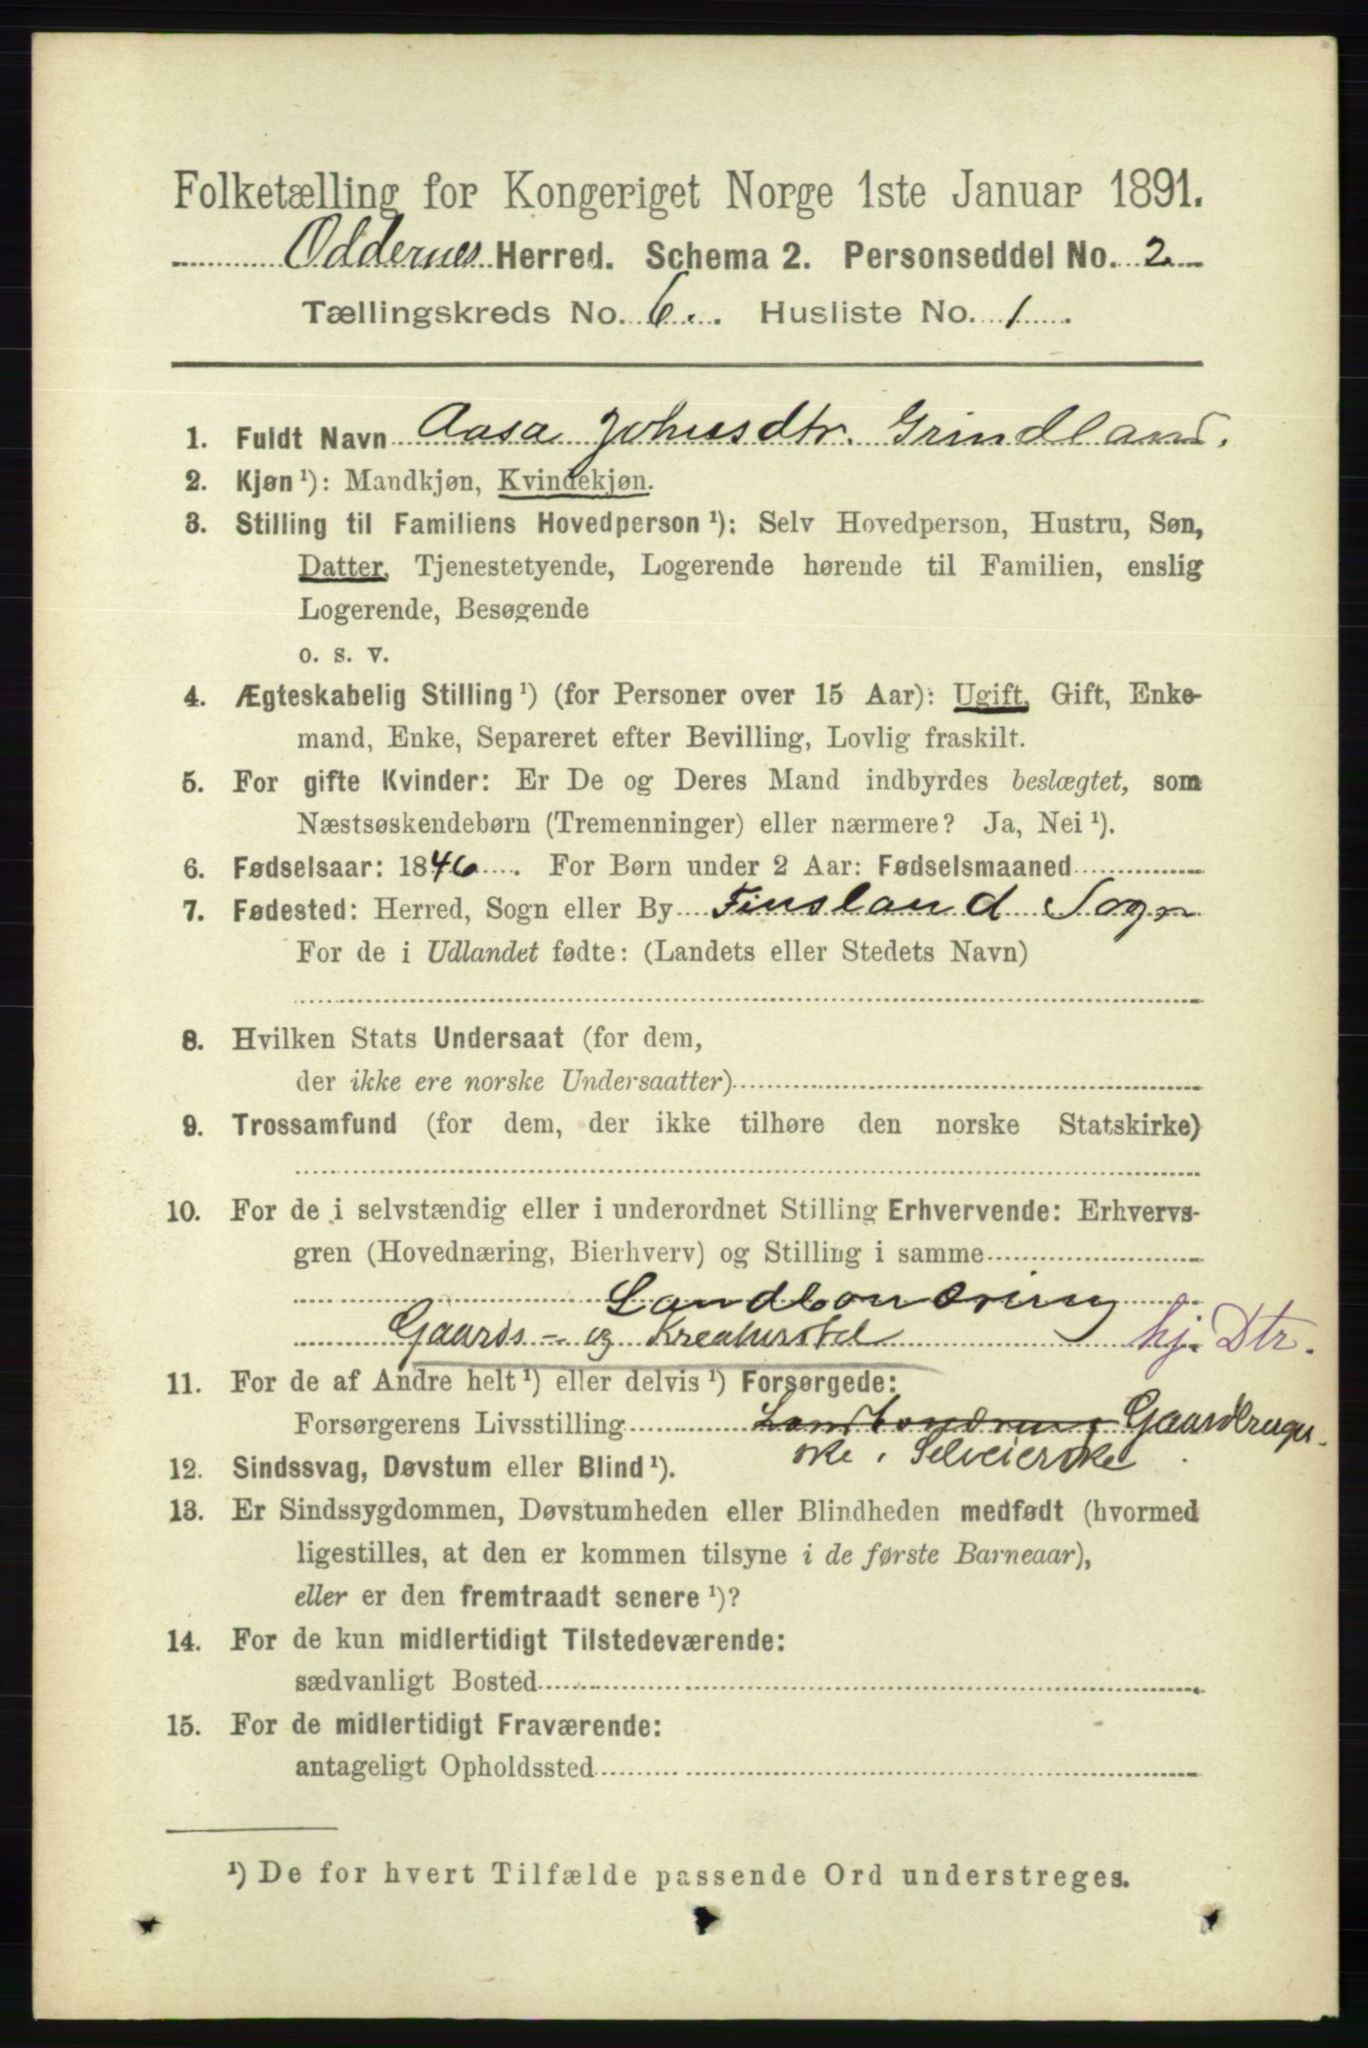 Folketælling for Kongeriget Norge 1ste Januar 1891.
Oddernes Herred. Schema 2. Personseddel No. 2
Tællingskreds No. 6. Husliste No. 1.
1. Fuldt Navn Aasa Johnsdtr. Grindland.
2. Kjøn ¹): Mandkjøn, Kvindekjøn.
3. Stilling til Familiens Hovedperson ¹): Selv Hovedperson, Hustru, Søn,
Datter, Tjenestetyende, Logerende hørende til Familien, enslig
Logerende, Besøgende
o. s. v.
4. Ægteskabelig Stilling ¹) (for Personer over 15 Aar): Ugift, Gift, Enke-
mand, Enke, Separeret efter Bevilling, Lovlig fraskilt.
5. For gifte Kvinder: Er De og Deres Mand indbyrdes beslægtet, som
Næstsøskendebørn (Tremenninger) eller nærmere? Ja, Nei ¹).
6. Fødselsaar: 1846. For Børn under 2 Aar: Fødselsmaaned
7. Fødested: Herred, Sogn eller By Finsland Sogn
For de i Udlandet fødte: (Landets eller Stedets Navn)
8. Hvilken Stats Undersaat (for dem,
der ikke ere norske Undersaatter)
9. Trossamfund (for dem, der ikke tilhøre den norske Statskirke)
10. For de i selvstændig eller i underordnet Stilling Erhvervende: Erhvervs-
gren (Hovednæring, Bierhverv) og Stilling i samme
Landbonæring
Gaards- og Kreaturstel hj. Dtr.
11. For de af Andre helt ¹) eller delvis ¹) Forsørgede:
Forsørgerens Livsstilling Landbonæring Gaardbruger-
ske, Selveierske
12. Sindssvag, Døvstum eller Blind ¹).
13. Er Sindssygdommen, Døvstumheden eller Blindheden medfødt (hvormed
ligestilles, at den er kommen tilsyne i de første Barneaar),
eller er den fremtraadt senere ¹)?
14. For de kun midlertidigt Tilstedeværende:
sædvanligt Bosted
15. For de midlertidigt Fraværende:
antageligt Opholdssted
¹) De for hvert Tilfælde passende Ord understreges.